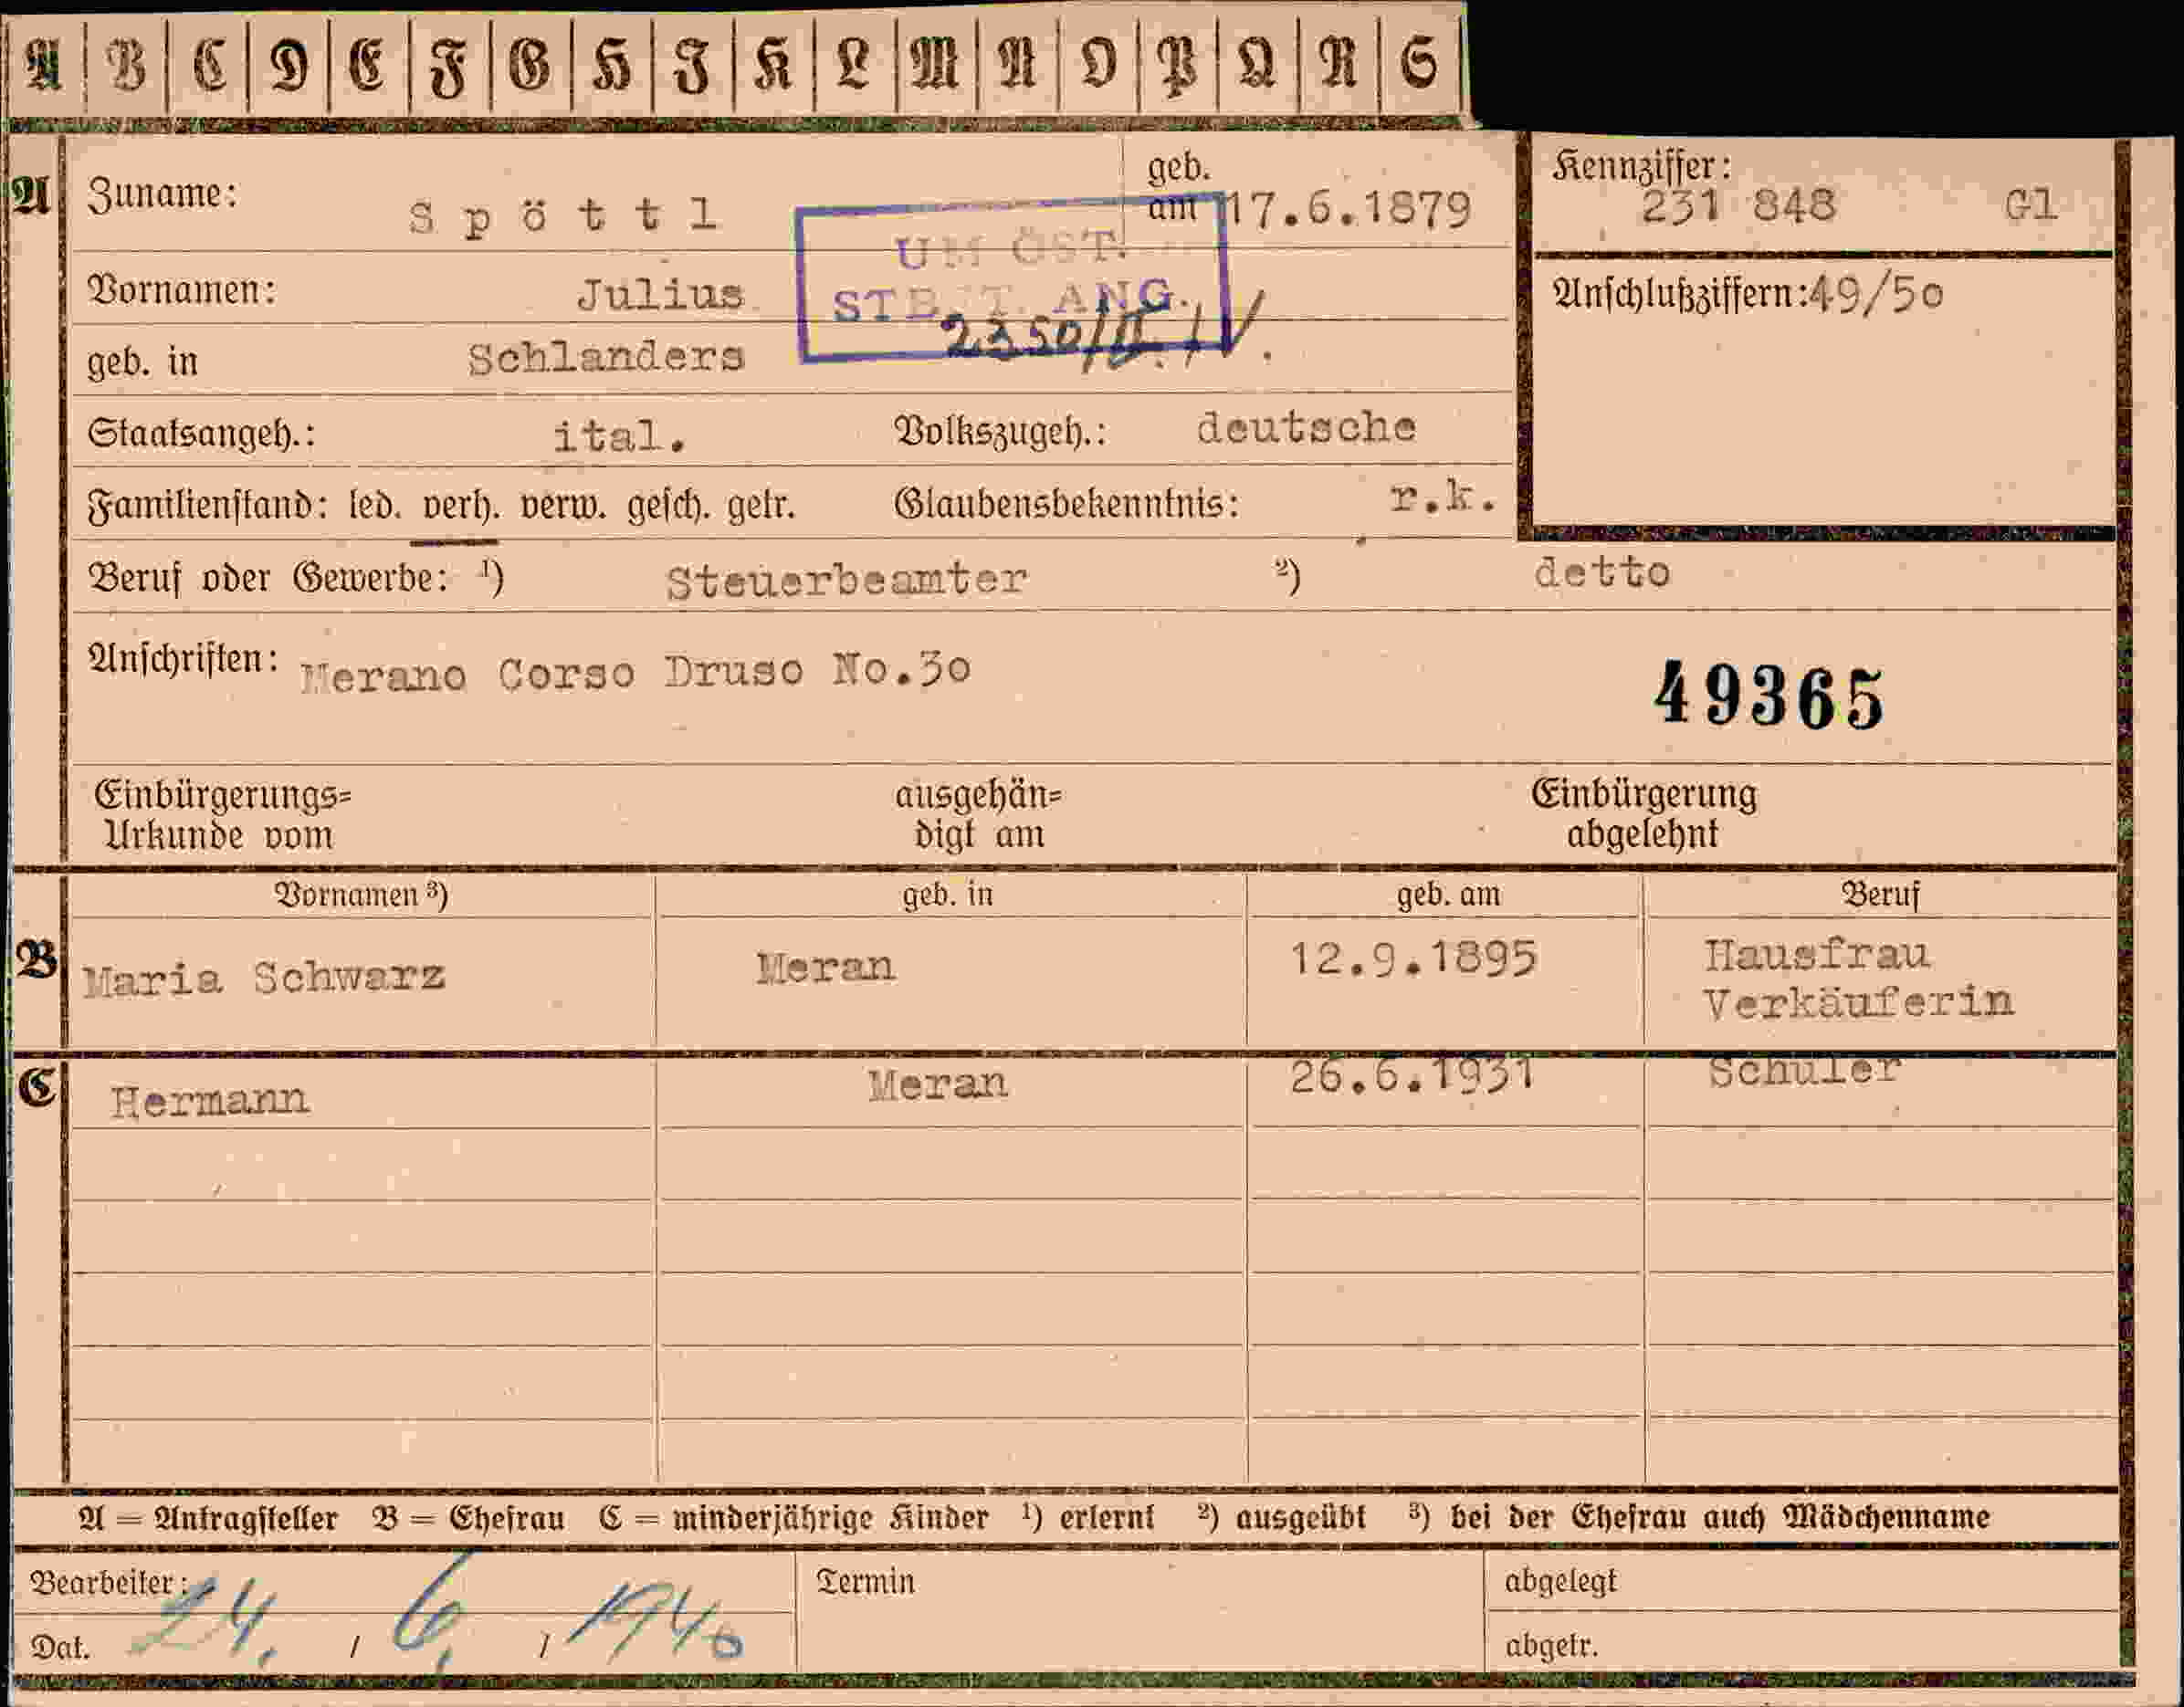 A B C D E F G H I K L M N O P Q R S
A
Zuname: Spöttl
geb. am 17.6.1879
Kennziffer: 231 848 Gl
UM ÖST.
STB.T. ANG.
2350/II./V.
Vornamen: Julius
Anschlußziffern: 49/50
geb. in Schlanders
Staatsangeh.: ital. Volkszugeh.: deutsche
Familienstand: led. verh. verw. gesch. getr. Glaubensbekenntnis: r.k.
Beruf oder Gewerbe: ¹) Steuerbeamter ²) detto
Anschriften: Merano Corso Druso No.30
49365
Einbürgerungs= ausgehän= Einbürgerung
Urkunde vom digt am abgelehnt
Vornamen ³) geb. in geb. am Beruf
B Maria Schwarz Meran 12.9.1895 Hausfrau
Verkäuferin
C Hermann Meran 26.6.1931 Schüler
A = Antragsteller B = Ehefrau C = minderjährige Kinder ¹) erlernt ²) ausgeübt ³) bei der Ehefrau auch Mädchenname
Bearbeiter: Termin abgelegt
Dat. 24. / 6. / 1940 abgetr.